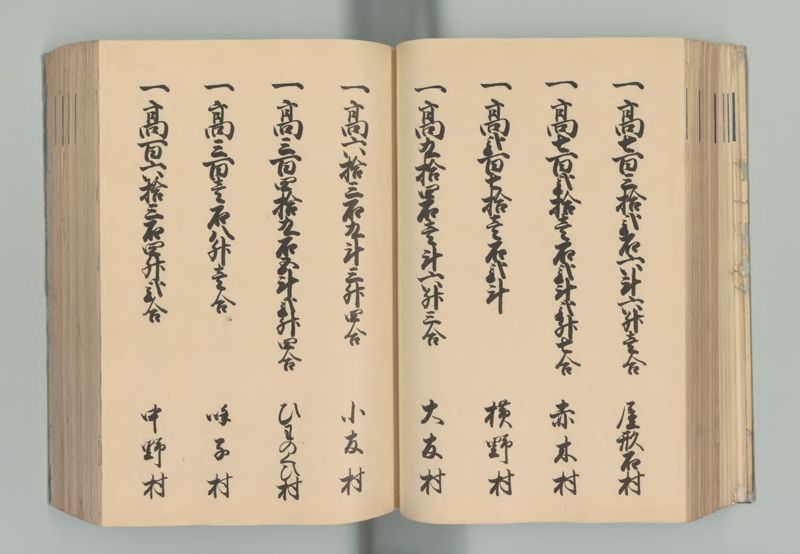 一高七百三拾弐石六斗六升壱合 屋形石村
一高七百弐拾壱石弐斗弐升七合 赤木村
一高弐百七拾壱石弐斗 横野村
一高九拾四石壱斗六升三合 大友村
一高六拾三石九斗三升四合 小友村
一高三百四拾九石五斗弐升四合 ひしのくひ村
一高三百壱石八升壱合 呼子村
一高百六拾三石四升弐合 中野村